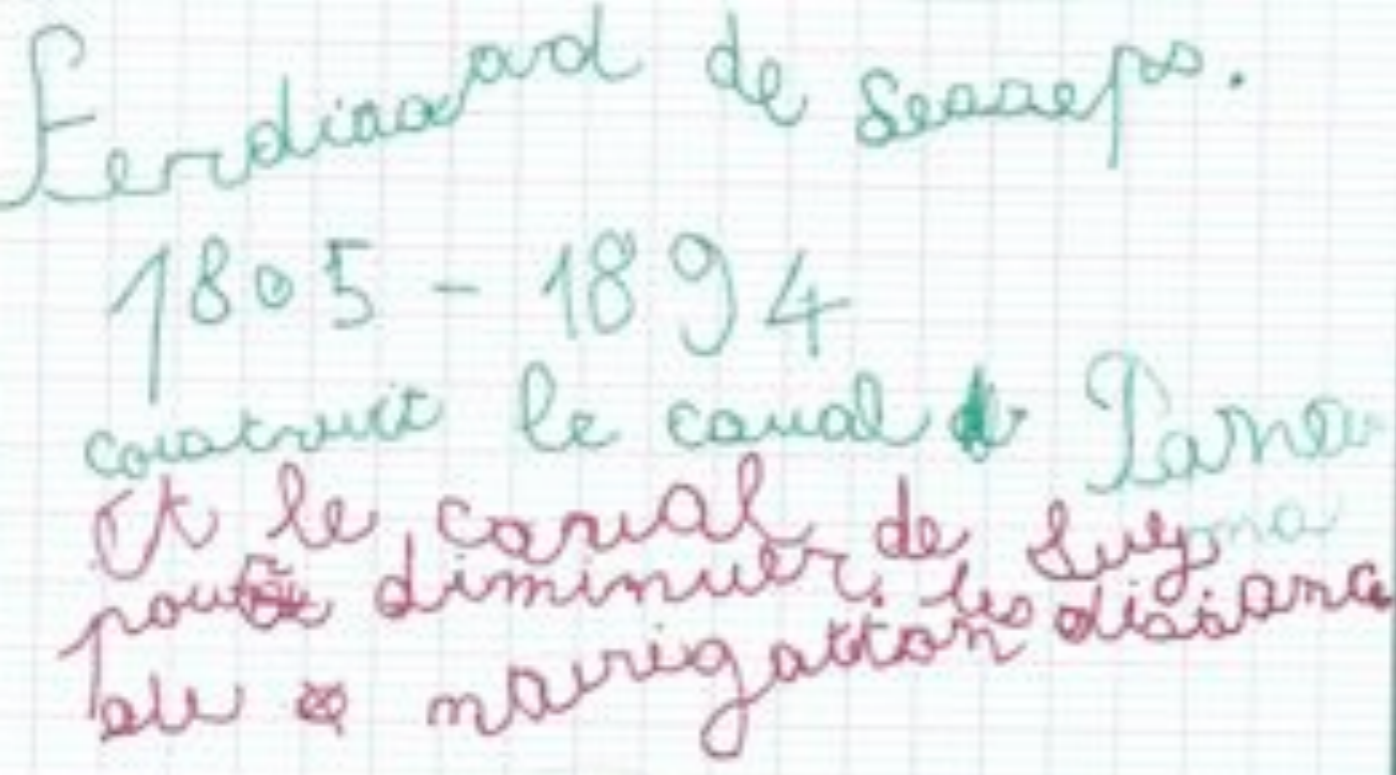 Ferdinand de Lesseps.
1805 - 1894
construit le canal de Pana
ma
Et le canal de Suez
pour diminuer les distance
de navigation